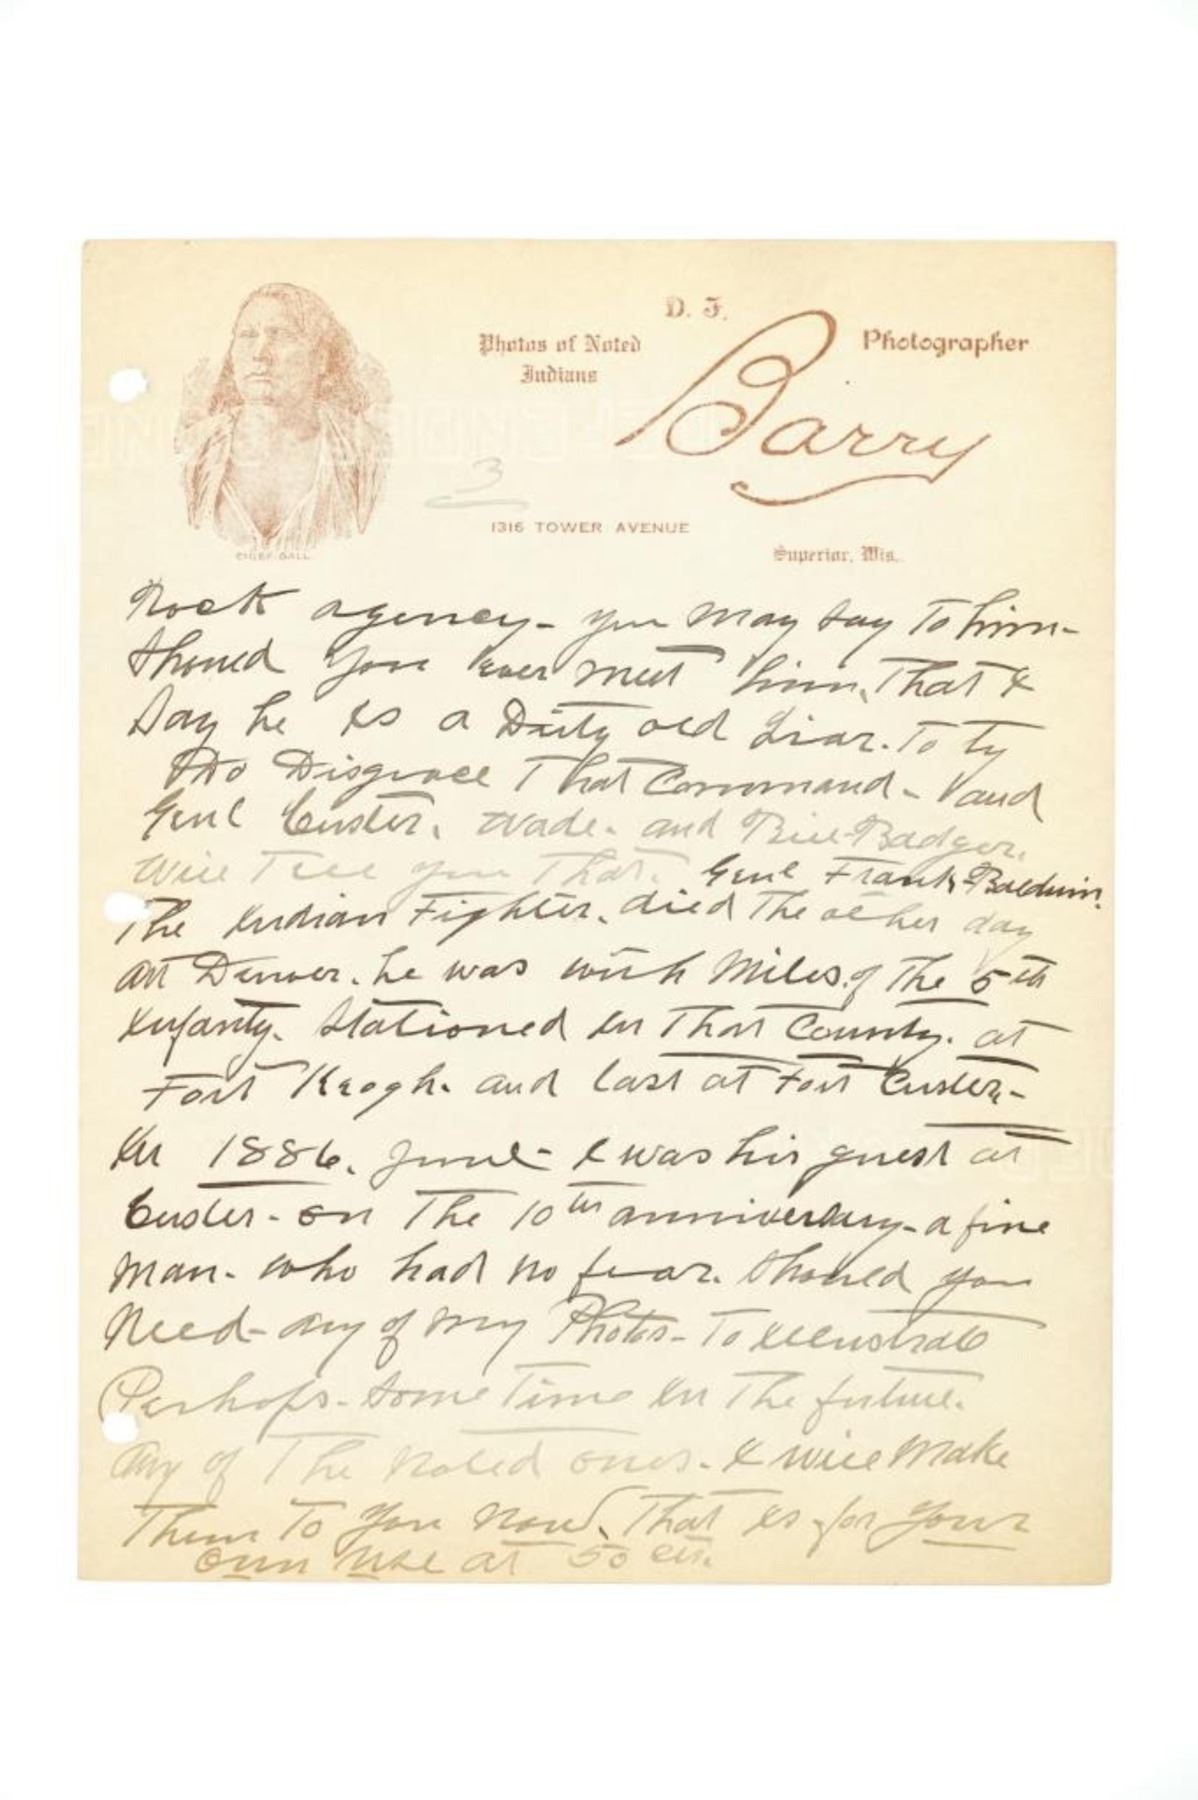 D. F.
Photos of Noted
Indians
Barry
Photographer
3
1316 TOWER AVENUE
Superior, Wis.
CHIEF GALL
Rock agency - you may say to him -
Should you ever meet him, That I
Say he is a Dirty old Liar. To try
to Disgrace That Command - and
Genl Custer. Wade - and Bill Badger.
Will Tell you That. Genl Frank Baldwin.
The Indian Fighter. died The other day
at Denver. he was with Miles of The 5th
Infanty. Stationed in That County. at
Fort Keogh. and last at Fort Custer -
In 1886. June - I was his guest at
Custer - on The 10th anniversary - a fine
Man - who had no fear. Should you
Need - any of my Photos - To illustrate
Perhaps - Some Time in The future.
Any of The Noted ones - I will Make
Them To you Now. That is for your
own use at 50 cts.